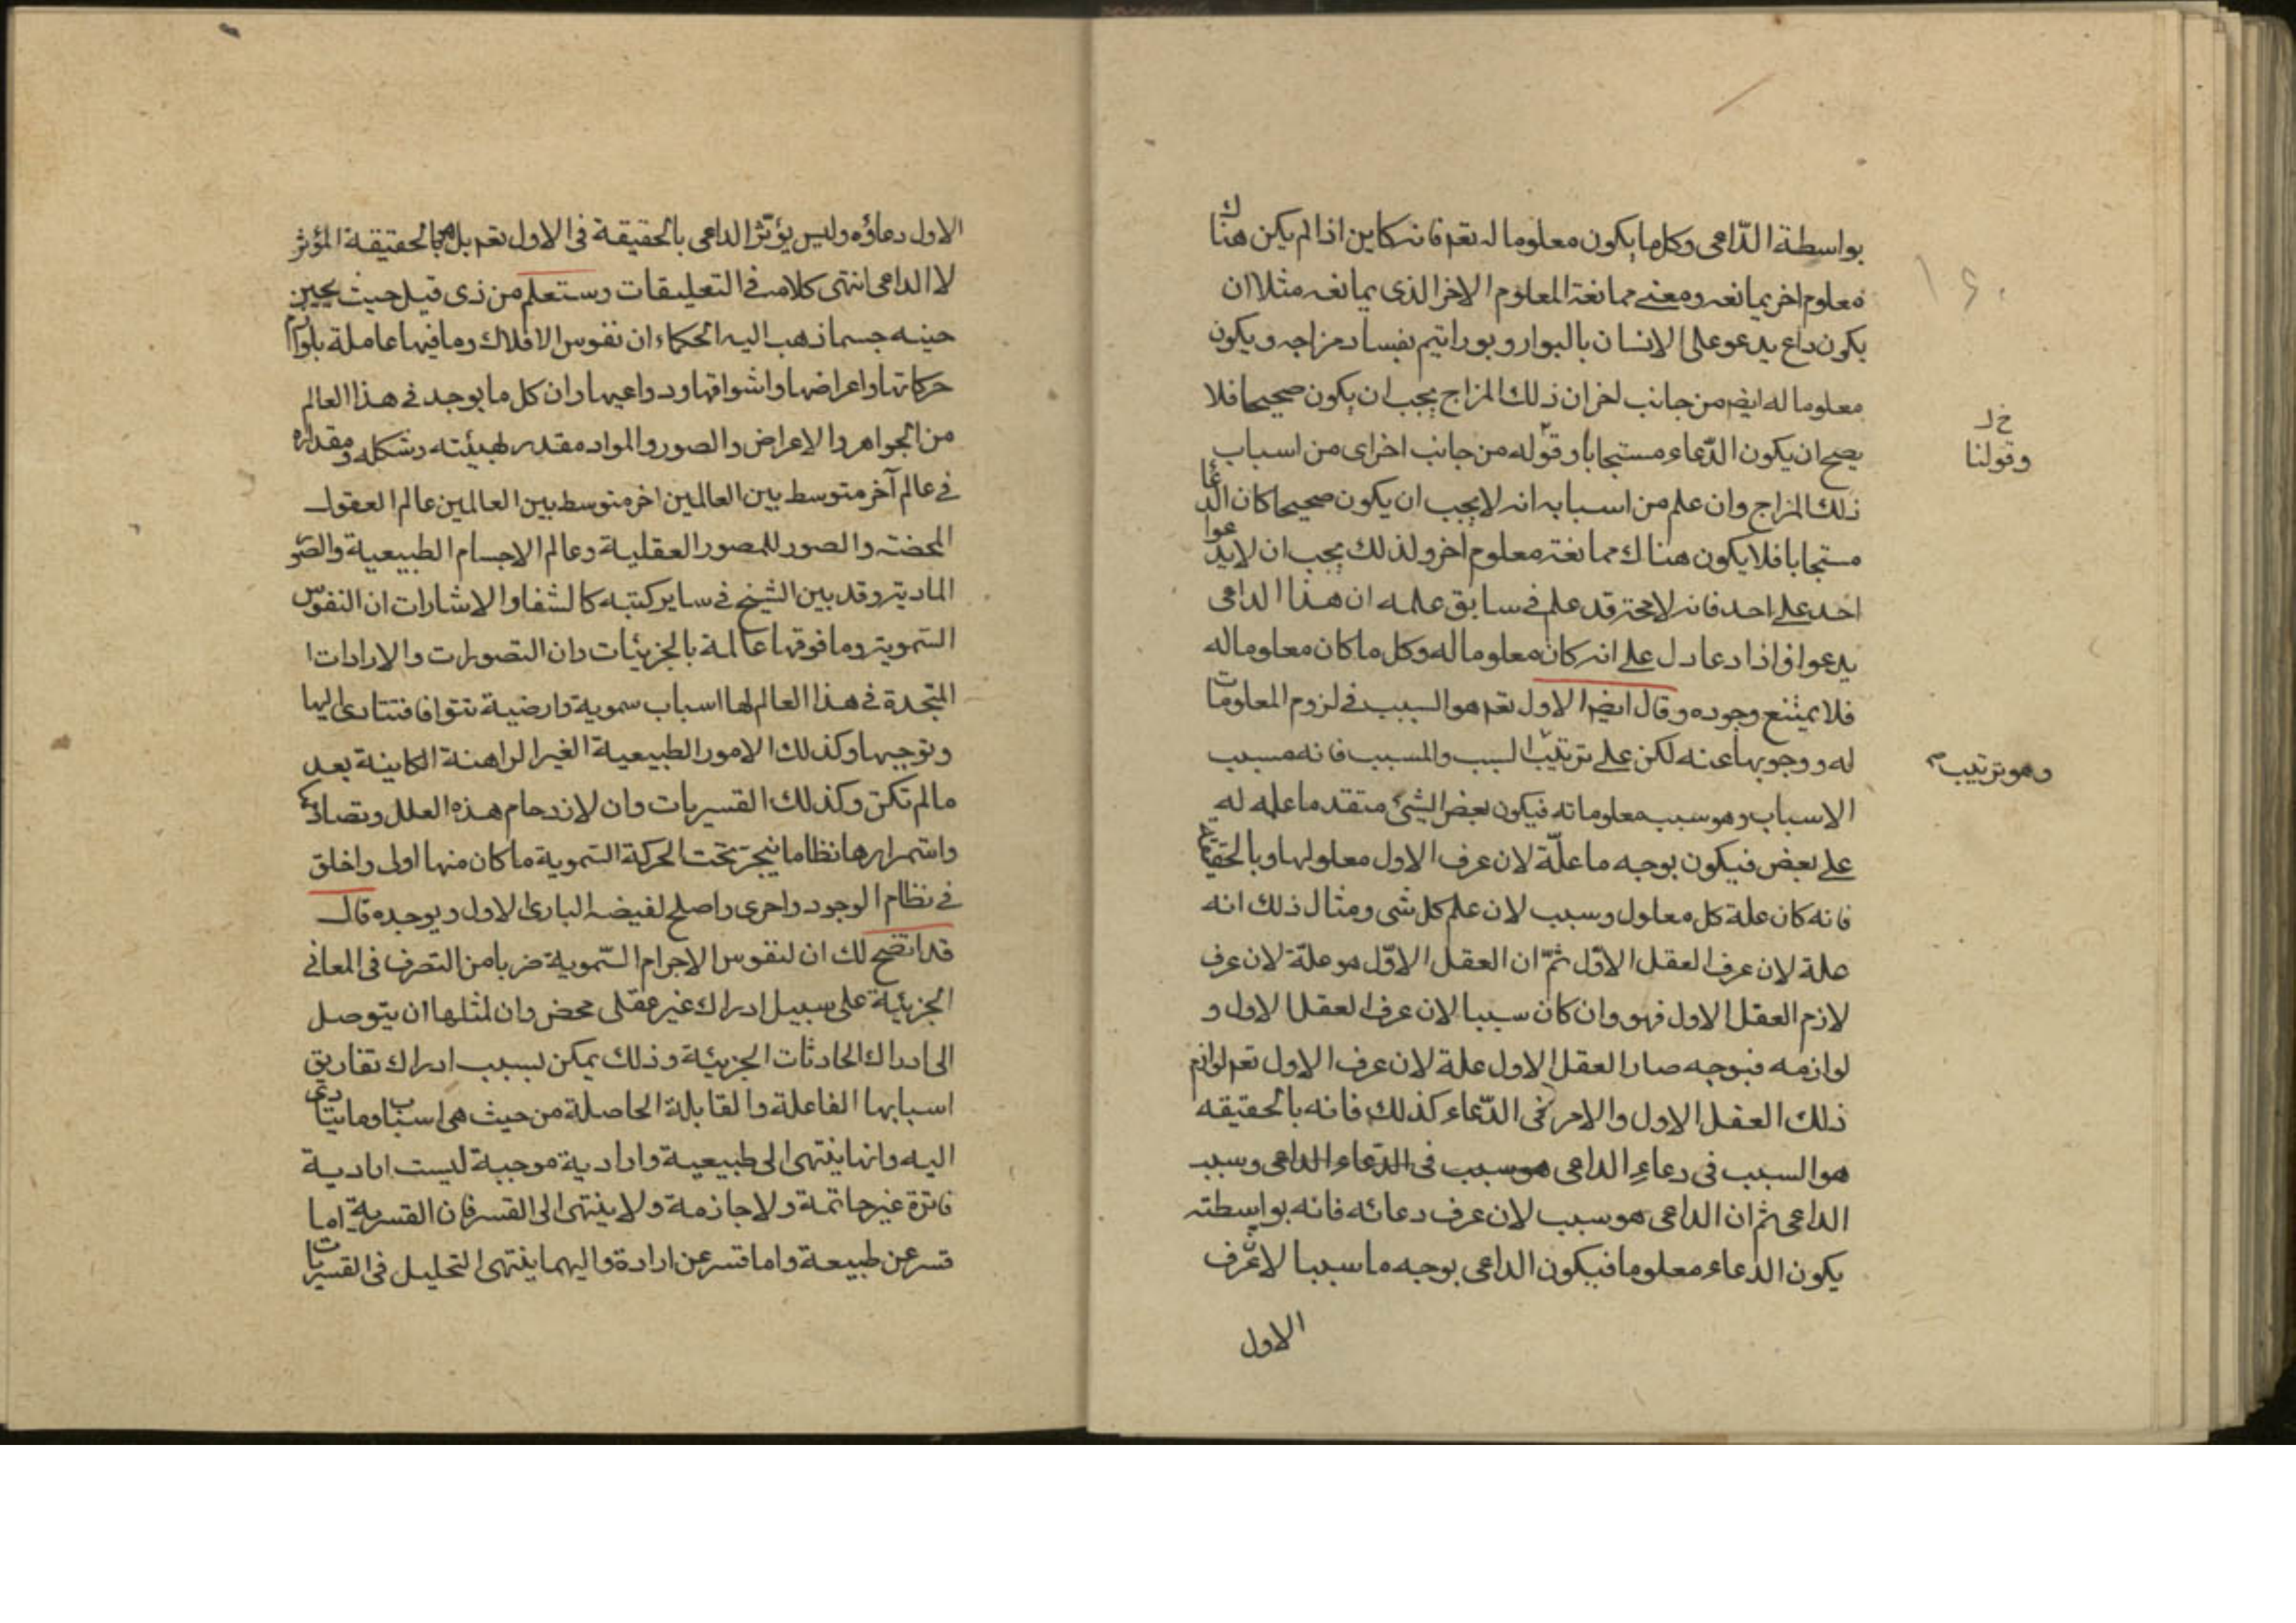 بواسطة الدّاعى وكل ما يكون معلوما له تعم فانه كاين اذا لم يكن هناك
معلوم اخر يمانعه ومعنى ممانعة المعلوم الاخر الذى يمانعه مثلا ان
يكون داع يدعو على الانسان بالبوار وبوراتيم بفساد مزاجه ويكون
معلوما له ايضم من جانب اخر ان ذلك المزاج يجب ان يكون صحيحا فلا
يصح ان يكون الدّعاء مستجابا وقوله من جانب اخر اى من اسباب
خ ل
وقولنا
ذلك المزاج وان علم من اسبابه انه لا يجب ان يكون صحيحا كان الدعا
مستجابا فلا يكون هناك ممانعة معلوم اخر ولذلك يجب ان لا يدعوا
احد على احد فانه لا محة قد علم فى سابق علمه ان هذا الداعى
يدعوا فاذا دعا دل على انه كان معلوما له وكل ما كان معلوما له
فلا يمتنع وجوده وقال ايضم الاول تعم هو السبب فى لزوم المعلومات
له ووجوبها عنه لكن على ترتيب السبب والمسبب فانه مسبب
وهو ترتيب
الاسباب وهو سبب معلوماته فيكون بعض الشئ متقدما علمه له
على بعض فيكون بوجه ما علّة لان عرف الاول معلولها وبالحقيقة
فانه كان علة كل معلول وسبب لان علم كل شى ومثال ذلك انه
علة لان عرف العقل الاوّل ثمّ ان العقل الاوّل هو علّة لان عرف
لازم العقل الاول فهو وان كان سببا لان عرف العقل الاول و
لوازمه فبوجه صار العقل الاول علة لان عرف الاول تعم لوازم
ذلك العقل الاول والامر فى الدّعاء كذلك فانه بالحقيقه
هو السبب فى دعاءِ الداعى هو سبب فى الدّعاء الداعى وسبب
الداعى ثم ان الداعى هو سبب لان عرف دعائه فانه بواسطته
يكون الدعاء معلوما فيكون الداعى بوجه ما سببا لان عرف
الاول
الاول دعاؤه وليس يؤثر الداعى بالحقيقة فى الاول تعم بل هو بالحقيقة المؤثر
لا الداعى انتهى كلامه فى التعليقات وستعلم من ذى قبل حيث يحين
حينه جسما ذهب اليه الحكماء ان نفوس الافلاك وما فيها عاملة بلوازم
حركاتها واعراضها واشواقها ودواعيها وان كل ما يوجد فى هذا العالم
من الجواهر والاعراض والصور والمواد مقدر لهيئته وشكله ومقداره
فى عالم آخر متوسط بين العالمين اخر متوسط بين العالمين عالم العقول
المحضة والصور للصور العقلية وعالم الاجسام الطبيعية والصو
المادية وقد بين الشيخ فى ساير كتبه كالشفا والاشارات ان النفوس
السّموية وما فوقها عالمة بالجزئيات وان التصورات والارادات ا
المتجددة فى هذا العالم لها اسباب سموية وارضية تتوافا فتتادى اليها
وتوجبها وكذلك الامور الطبيعية الغير الراهنة الكاينة بعد
ما لم تكن وكذلك القسريات وان لازدحام هذه العلل وتصادك
واستمرارها نظاما ينجر تحت الحركة السّموية ما كان منها اولى واخلق
فى نظام الوجود واحرى واصلح لفيضه البارى الاول ويوجده قال
قد اتضح لك ان لنفوس الاجرام السّموية ضربا من التصرف فى المعانى
الجزئية على سبيل ادراك غير عقلى محض وان لمثلها ان يتوصل
الى ادراك الحادثات الجزئية وذلك يمكن بسبب ادراك تفاريق
اسبابها الفاعلة والقابلة الحاصلة من حيث هى اسباب وما يتادى
اليه وانها ينتهى الى طبيعية وارادية موجبة ليست ارادية
فاترة غير حاتمة ولا جازمة ولا ينتهى الى القسر فان القسرية اما
قسر عن طبيعة واما قسر عن ارادة واليهما ينتهى التحليل فى القسريات